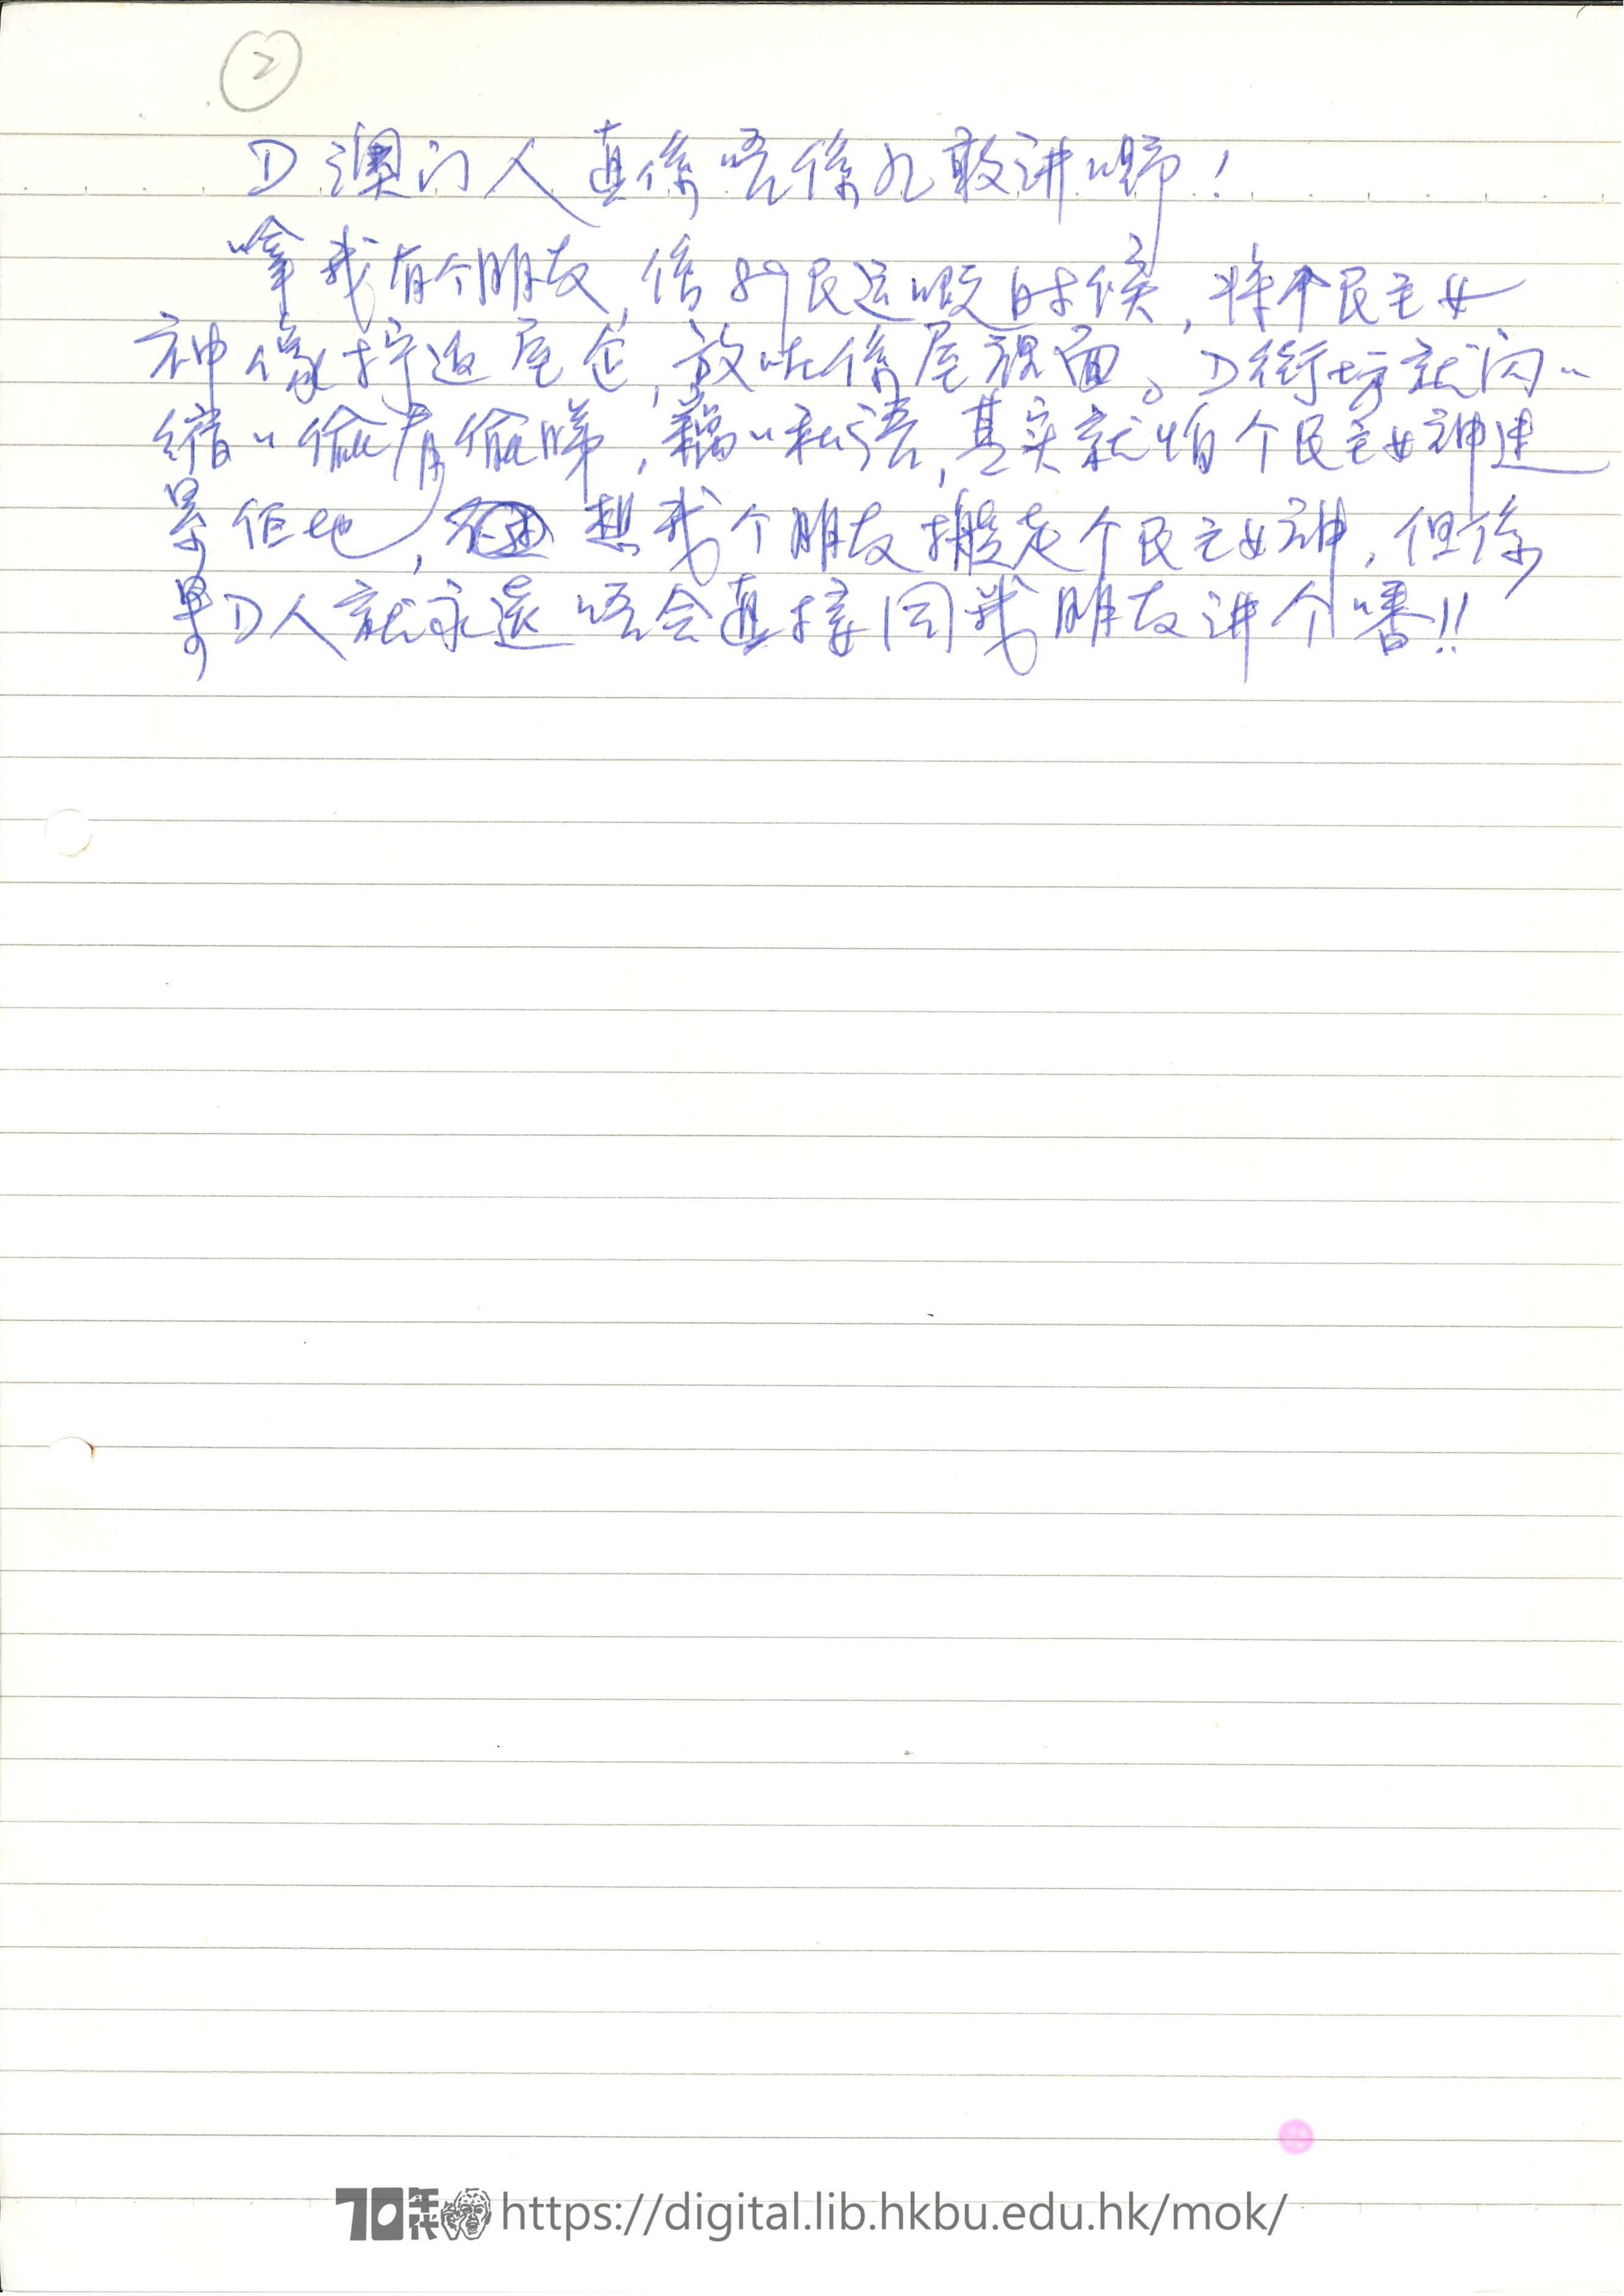 ②
D 澳门人真係唔係几敢讲嘢!
嗱我有个朋友,係89民运嘅时候,将个民主女
神像拧返屋企,放咗係屋裡面。D街坊就闪〃
缩〃偷看偷睇,竊〃私语,其实就怕个民主女神连
累佢地,想我个朋友搬走个民主女神,但係
果D人就永远唔会直接同我朋友讲个噃!!
70年代 https://digital.lib.hkbu.edu.hk/mok/